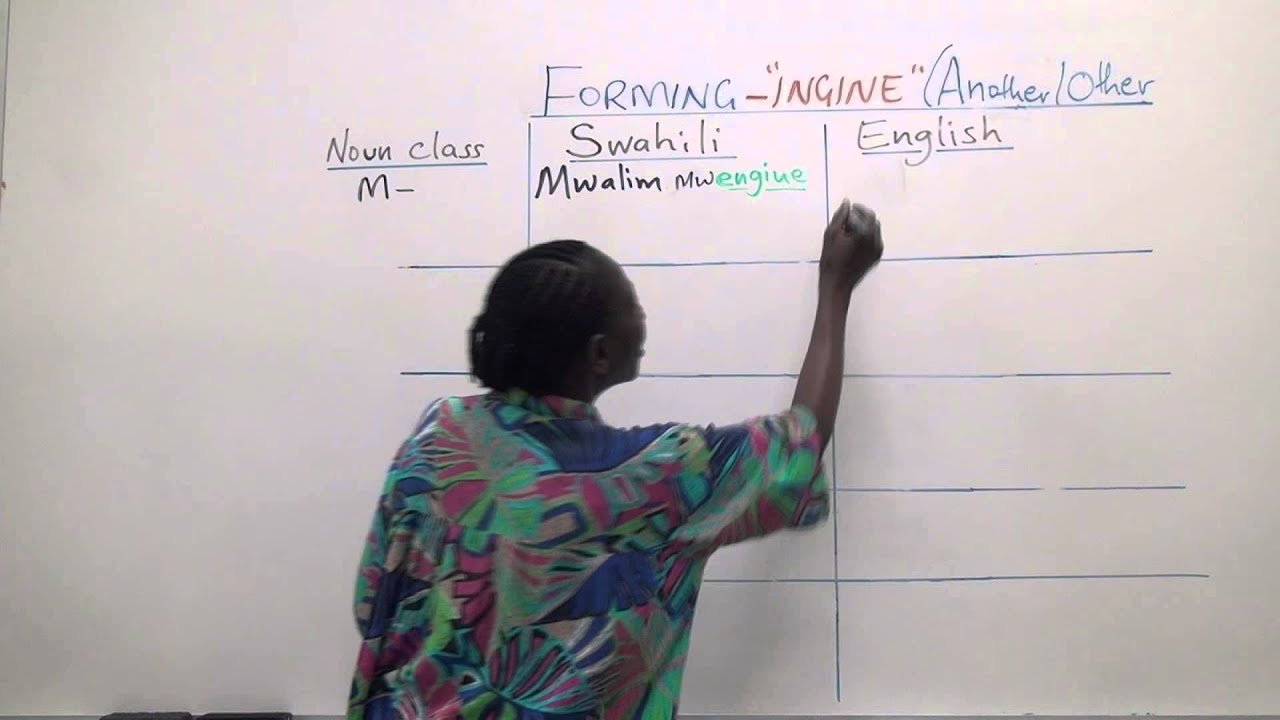 FORMING -"INGINE" (Another/Other
Noun class Swahili English
M- Mwalim Mwengine